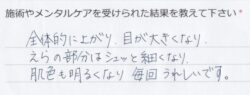 施術やメンタルケアを受けられた結果を教えて下さい*
全体的に上がり、目が大きくなり、
えらの部分はシュッと細くなり、
肌色も明るくなり 毎回うれしいです。